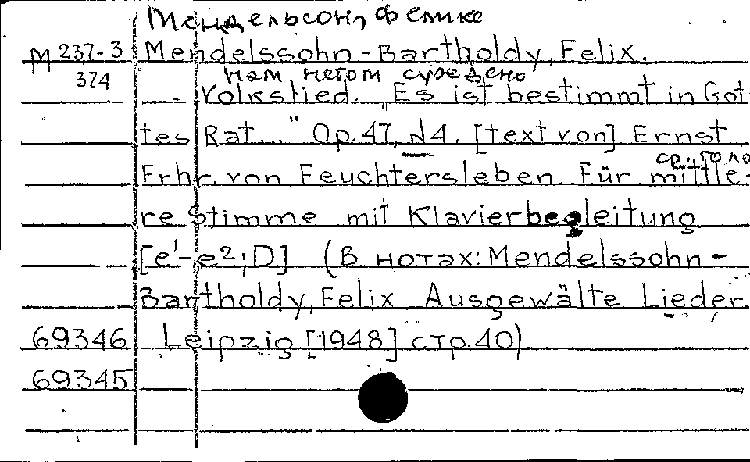 Мендельсон, Феликс
М 237-3 Mendelssohn-Bartholdy, Felix.
374 нам негом суждено
Volkslied. "Es ist bestimmt in Got-
tes Rat..." Op.47, d4. [text von] Ernst
ср. голо
Frhr. von Feuchtersleben Für mittle-
re Stimme mit Klavierbegleitung
[e¹-e²; D] (В нотах: Mendelssohn-
Bartholdy, Felix Ausgewälte Lieder
69346 Leipzig [1948] стр. 40)
69345